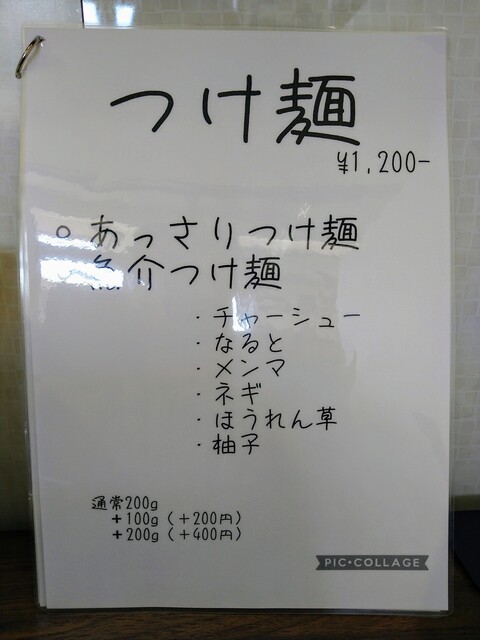 つけ麺
¥1,200-
○ あっさりつけ麺
○ 魚介つけ麺
・チャーシュー
・なると
・メンマ
・ネギ
・ほうれん草
・柚子
通常200g
+100g (+200円)
+200g (+400円)
PIC•COLLAGE